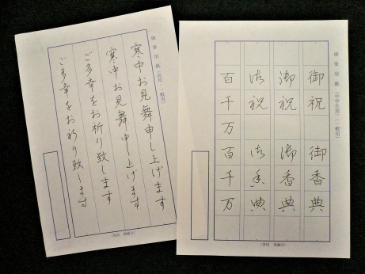 御祝 御香典
御祝 御香典
御祝 御香典
百千万 百千万
寒中お見舞申し上げます
寒中お見舞申し上げます
ご多幸をお祈り致します
ご多幸をお祈り致します